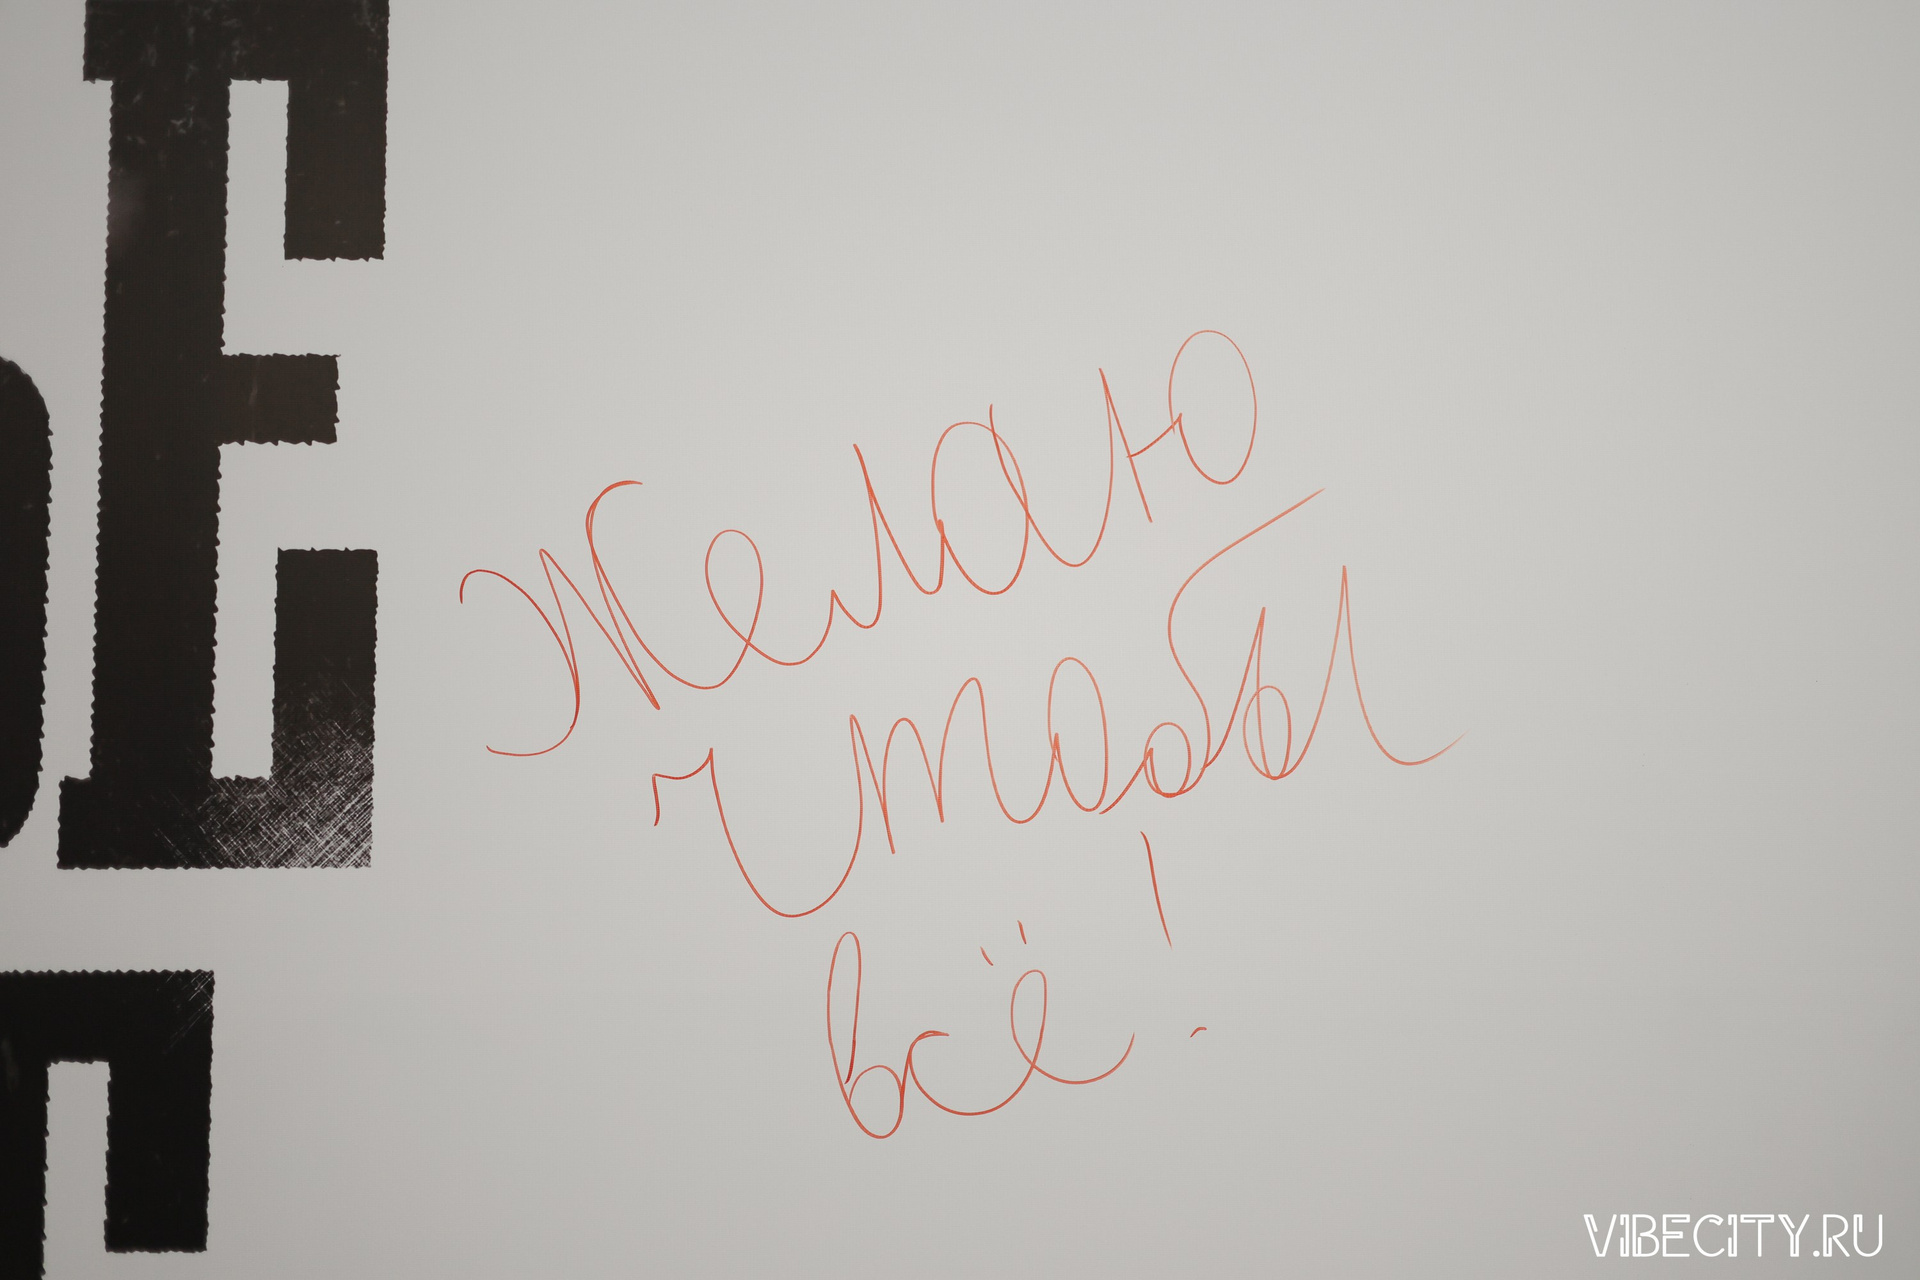 Е
Желаю
чтобы
всё!
VIBECITY.RU